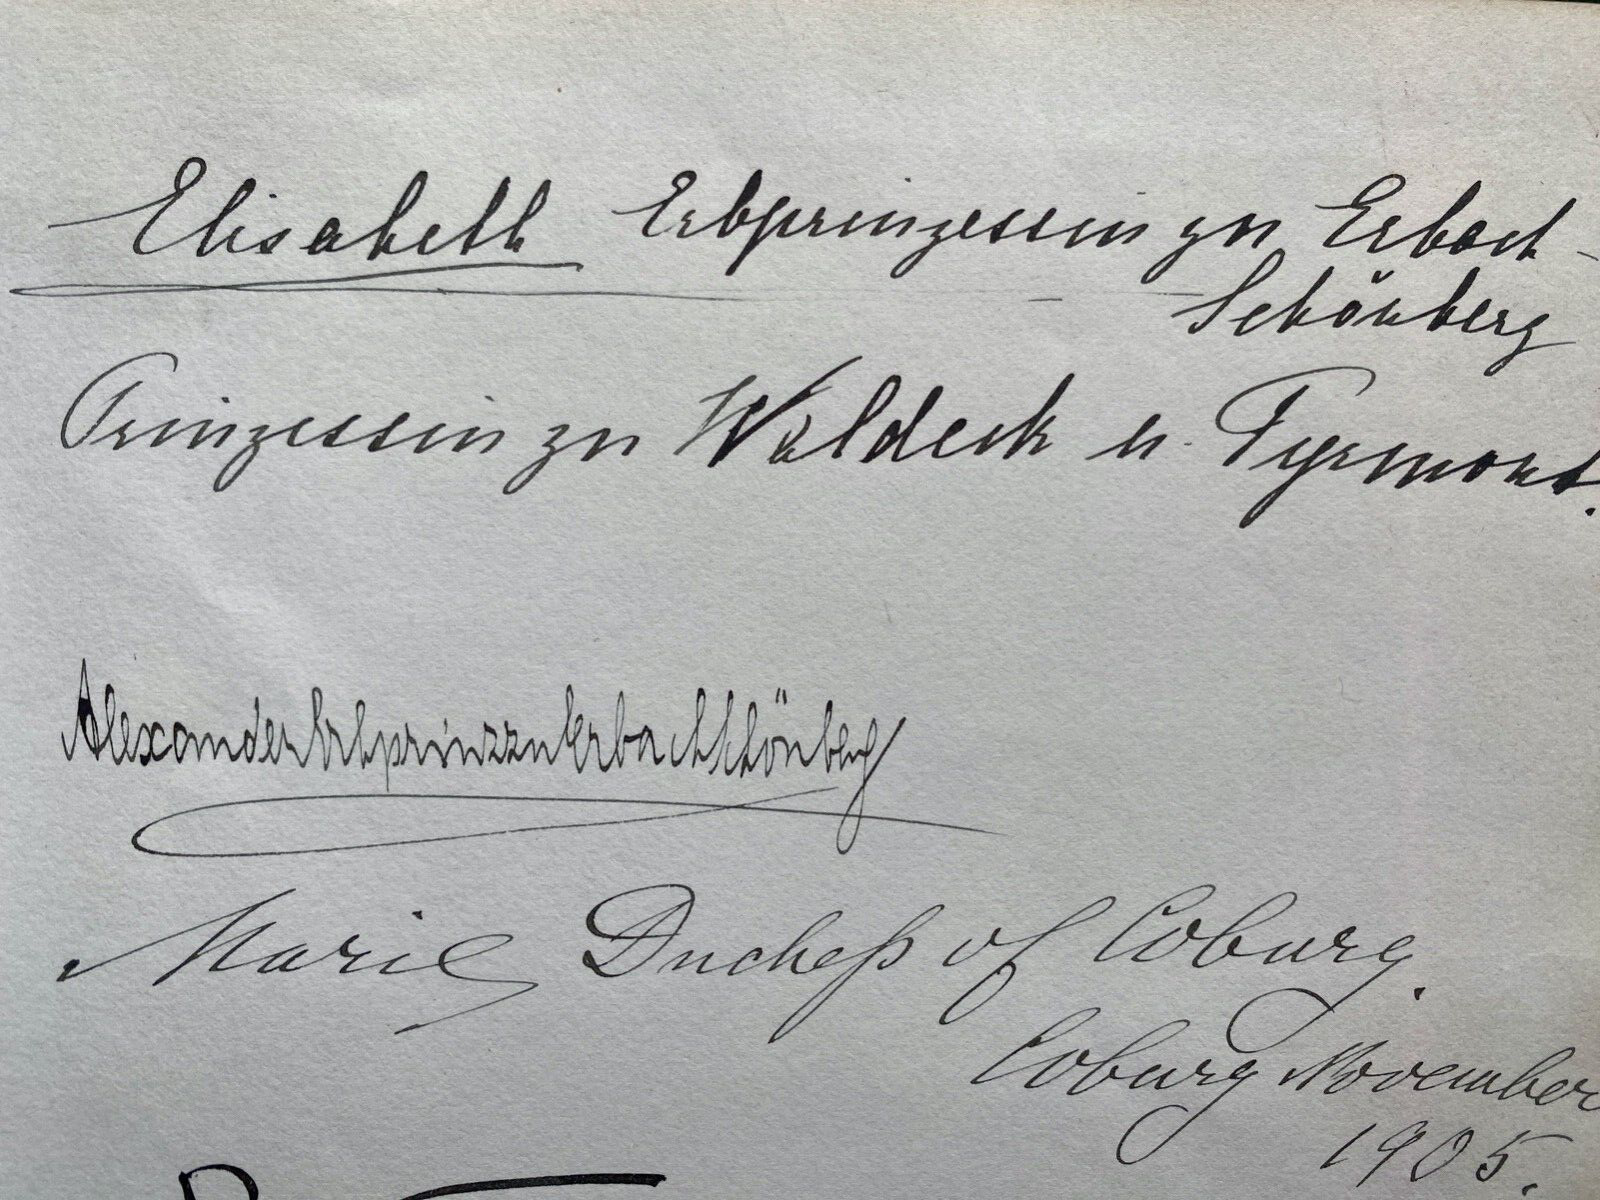 Elisabeth Erbprinzessin zu Erbach-
Schönberg
Prinzessin zu Waldeck u. Pyrmont.
Alexander Erbprinz zu Erbach Schönberg
Marie Duchess of Coburg.
Coburg November
1905.